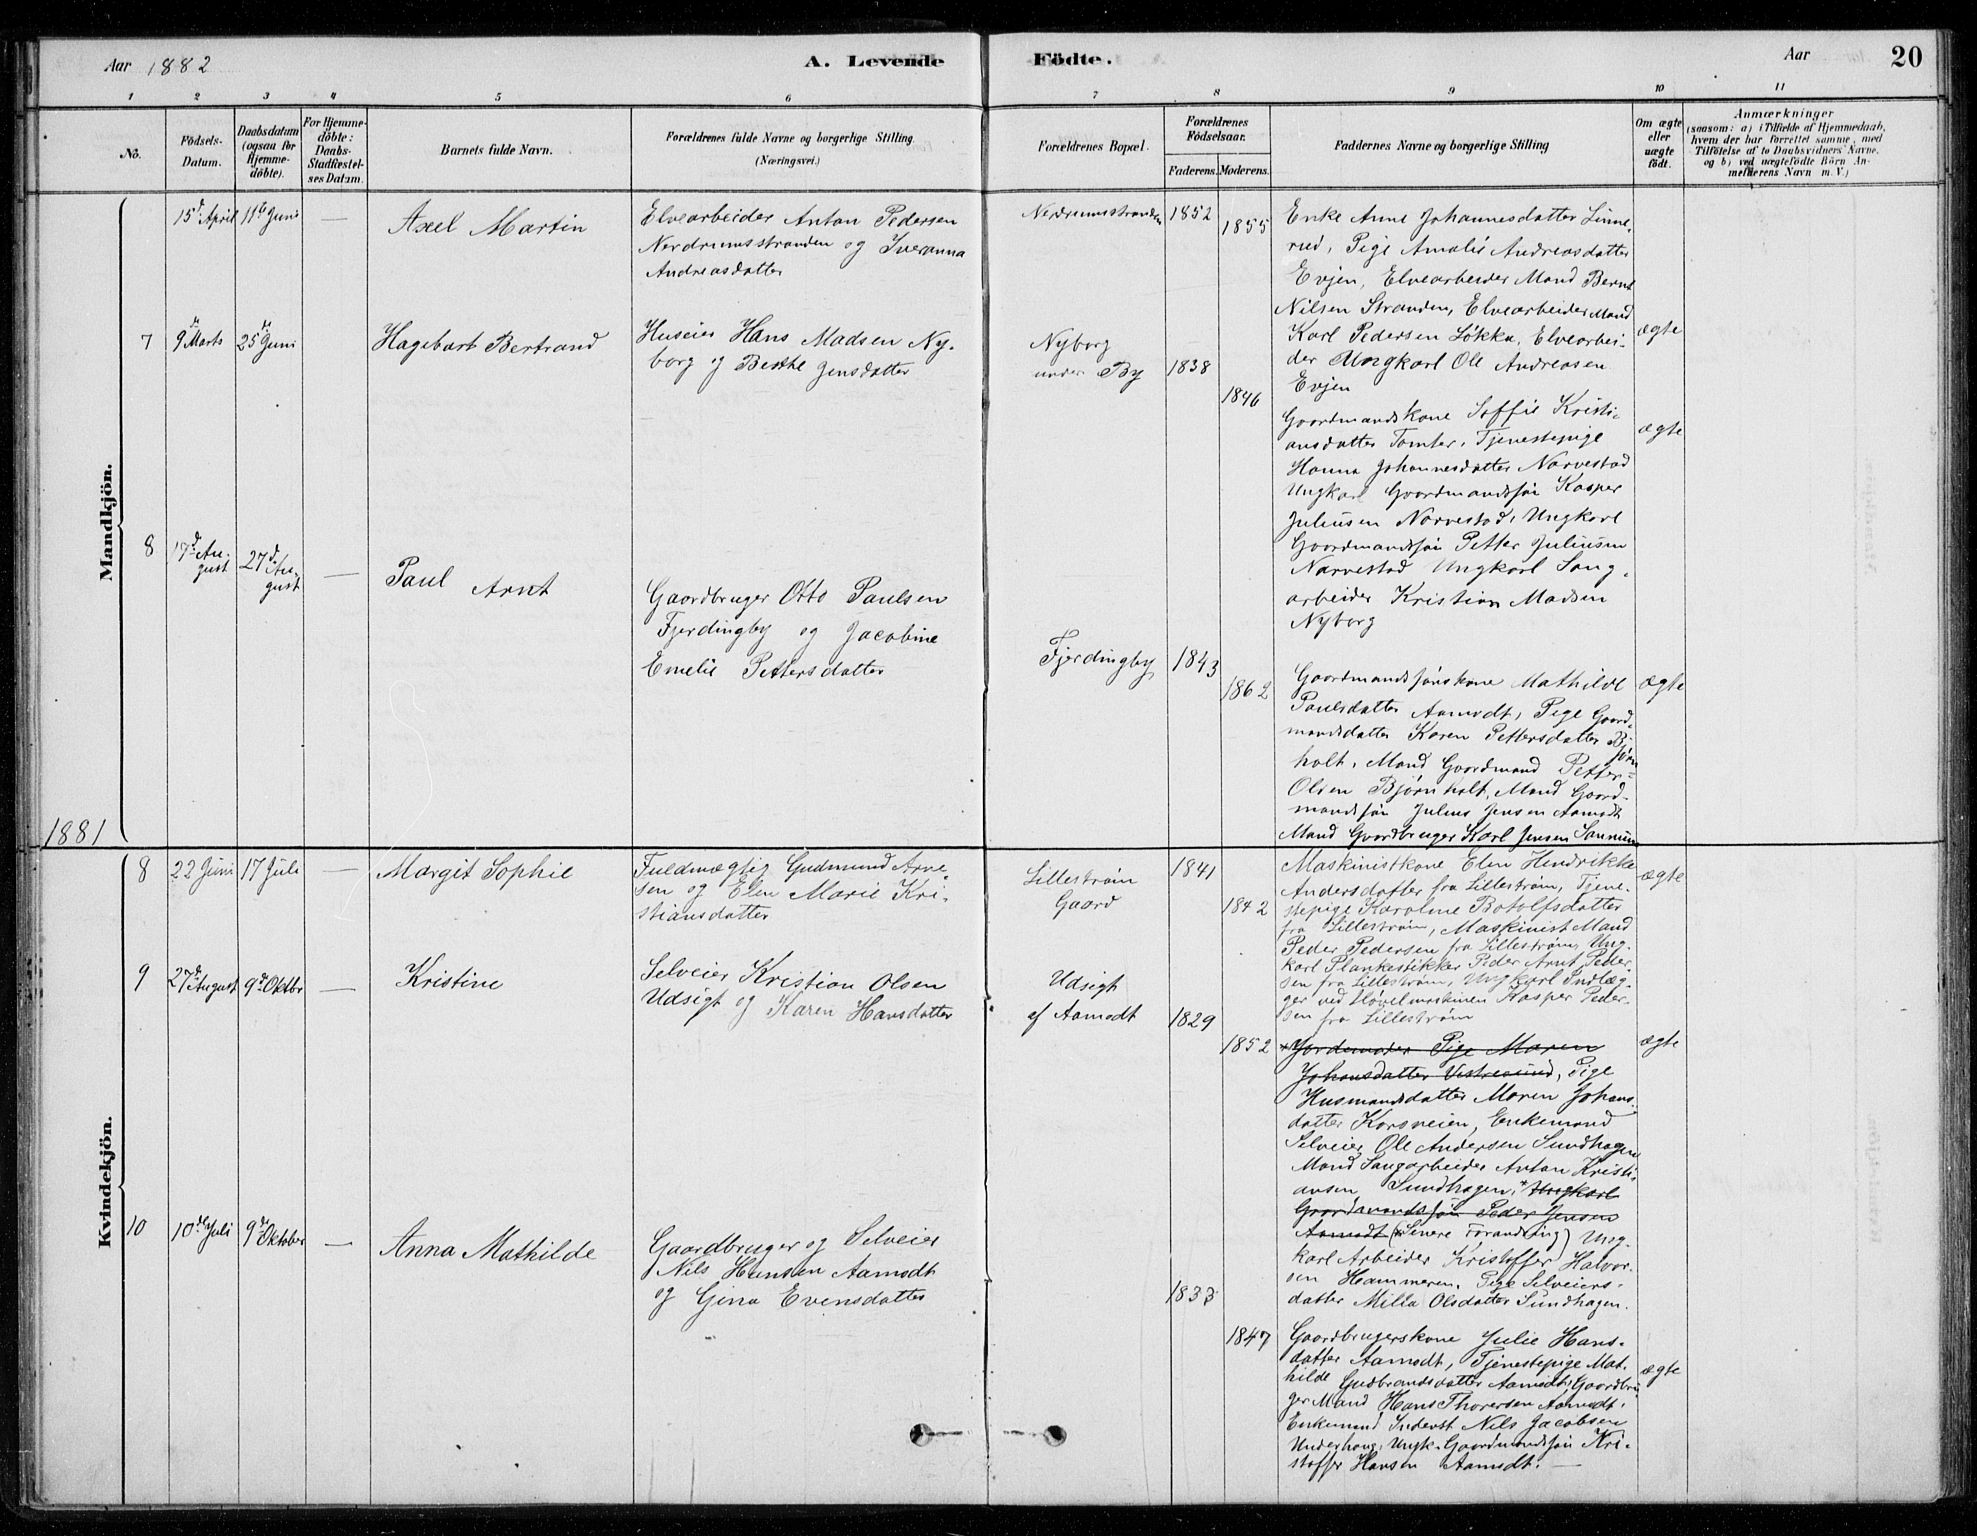 Aar 1882
A. Levende Födte.
Aar
20
1 2 3 4 5 6 7 8 9 10 11
No.
Födsels-
Datum.
Daabsdatum
(ogsaa for
Hjemme-
döbte).
For Hjemme-
döbte:
Daabs-
Stadfæstel-
ses Datum.
Barnets fulde Navn.
Forældrenes fulde Navne og borgerlige Stilling.
(Næringsvei.)
Forældrenes Bopæl.
Forældrenes
Födselsaar.
Faderens.
Moderens.
Faddernes Navne og borgerlige Stilling
Om ægte
eller
uægte
födt.
Anmærkninger
(saasom: a) i Tilfælde af Hjemmedaab,
hvem der har forrettet samme, med
Tilföielse af to Daabsvidners Navne,
og b) ved uægtefödte Börn An-
melderens Navn m. V.)
Mandkjön.
15d April 11te Juni — Axel Martin
Elvearbeider Anton Pedersen
Nerdrumsstranden og Iveranna
Andreasdatter
Nerdrumsstranden 1852 1855
Enke Anne Johannesdatter Linne-
rud, Pige Amalie Andreasdatter
Evjen, Elvearbeider Mand Bernt
Nilsen Stranden, Elvearbeider Mand
Karl Pedersen Løkka, Elvearbei-
der Ungkarl Ole Andreasen
Evjen
ægte
7 9de Marts 25de Juni Hagebart Bertrand
Huseier Hans Madsen Ny-
borg og Berthe Jensdatter
Nyborg
under By 1838 1846
Gaardmandskone Soffie Kristi-
ansdatter Tomter, Tjenestepige
Hanna Johannesdatter Narvestad
Ungkarl Gaardmandssøn Kasper
Juliusen Narvestad, Ungkarl
Gaardmandssøn Petter Juliusen
Narvestad Ungkarl Saug-
arbeider Kristian Madsen
Nyborg
ægte
8 17d Au-
gust 27d Au-
gust — Paul Arnt
Gaardbruger Otto Paulsen
Fjerdingby og Jacobine
Emelie Pettersdatter
Fjerdingby 1843 1862
Gaardmandssønskone Mathilde
Paulsdatter Aamodt, Pige Gaard-
mandsdatter Karen Pettersdatter Bjørn-
holt, Mand Gaardmand Petter
Olsen Bjørnholt, Mand Gaard-
mandssøn Julius Jensen Aamodt
Mand Gaardbruger Karl Jensen
ægte
1881
Kvindekjön.
8 22 Juni 17 Juli — Margit Sophie
Fuldmægtig Gudmund Arne-
sen og Elen Marie Kri-
stiansdatter
Lillestrøm
Gaard 1841 1842
Maskinistkone Elen Hendrikke
Andersdatter fra Lillestrøm, Tjene-
stepige Karoline Botolfsdatter
fra Lillestrøm, Maskinist Mand
Peder Pedersen fra Lillestrøm, Ung-
karl Plankestikker Peder Arnt Peder-
sen fra Lillestrøm, Ungkarl Indlæg-
ger ved Høvelmaskinen Kasper Peder-
sen fra Lillestrøm
ægte
9 27de August 9de Oktbr — Kristine
Selveier Kristian Olsen
Udsigt og Karen Hansdatter
Udsigt
af Aamodt 1829 1852
Jordemoder Pige Maren
Johansdatter Vestresund, Pige
Husmandsdatter Maren Johans-
datter Korsveien, Enkemand
Selveier Ole Andersen Sundhagen
Mand Saugarbeider Anton Kristi-
ansen Sundhagen, * Ungkarl
Gaardmandssøn Peder Jensen
Aamodt (* Senere Forandring) Ung-
karl Arbeider Kristoffer Halvor-
sen Hammeren, Pige Selveiers-
datter Milla Olsdatter Sundhagen.
ægte
10 10de Juli 9de Oktober — Anna Mathilde
Gaardbruger og Selveier
Nils Hansen Aamodt
og Gina Evensdatter
1833 1847
Gaardbrugerskone Julie Hans-
datter Aamodt, Tjenestepige Mat-
hilde Gudbrandsdatter Aamodt, Gaardbru-
ger Mand Hans Thorersen Aamodt,
Enkemand Inderst Nils Jacobsen
Underhaug, Ungk. Gaardmandssøn Kri-
stoffer Hansen Aamodt. —
ægte